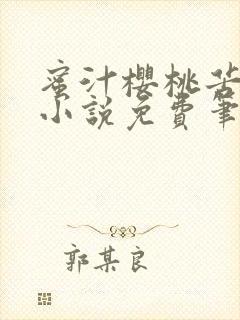 蜜汁櫻桃苦
小說免費筆
郭某良